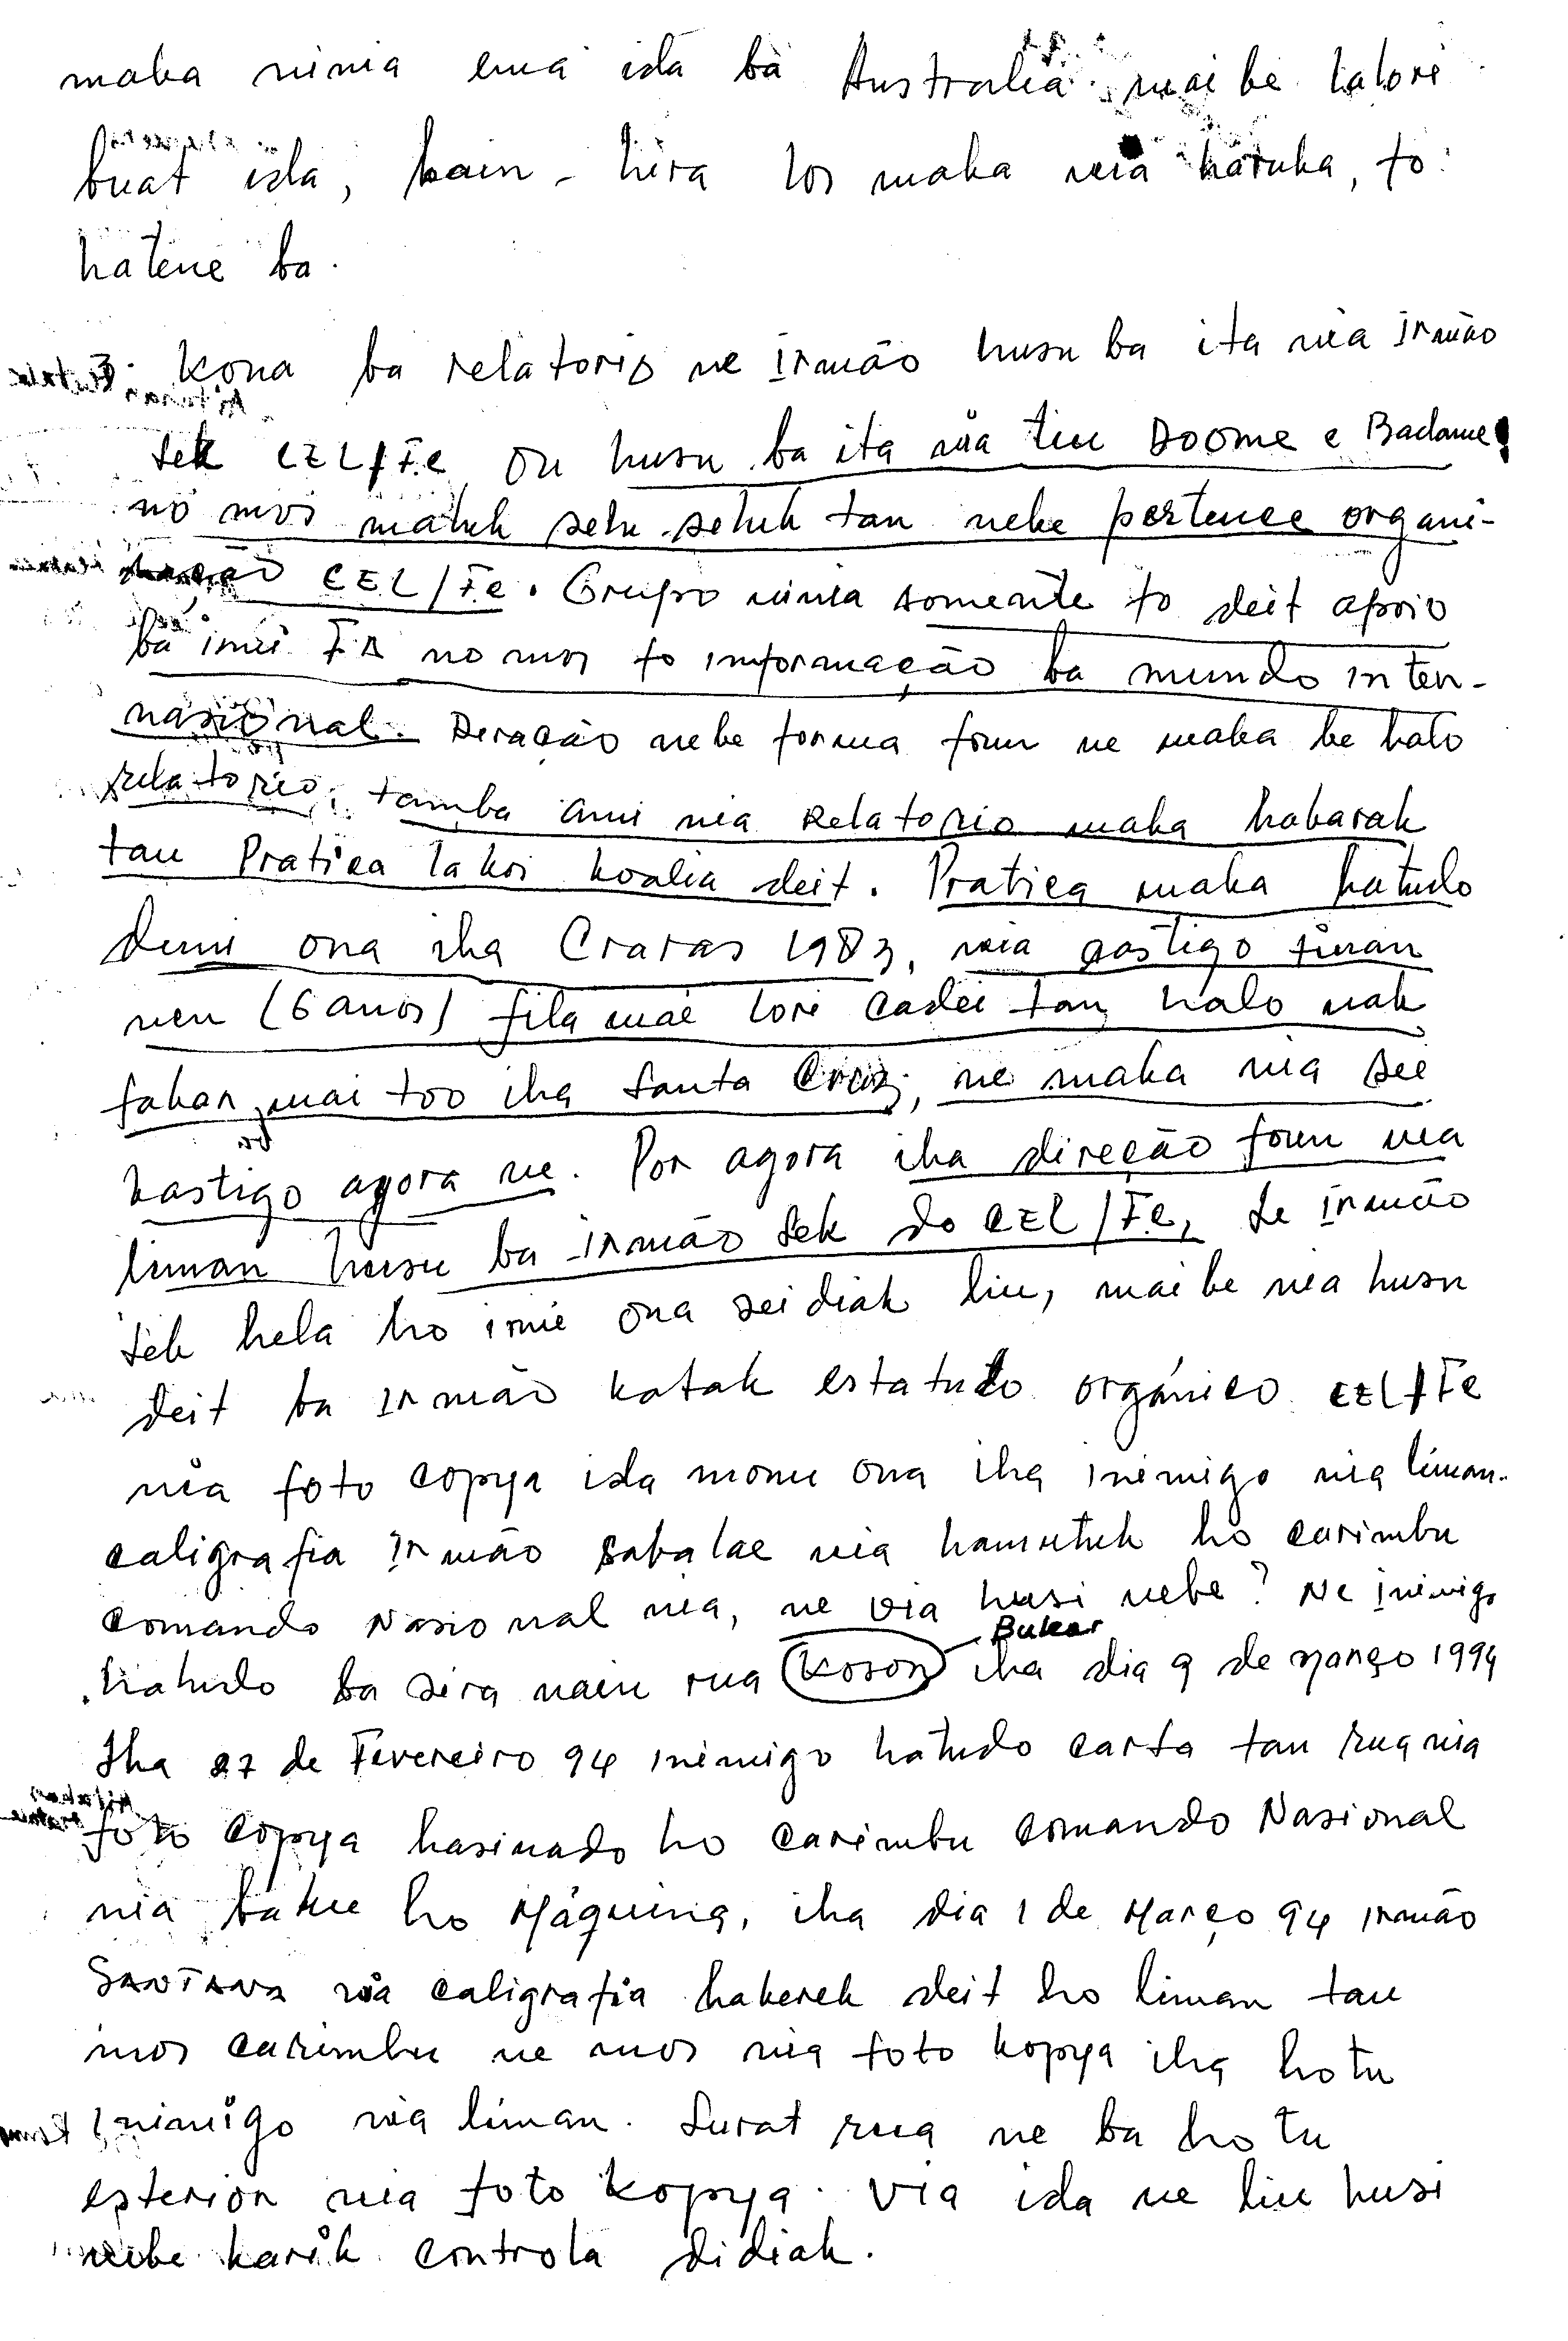 maka ninia ema ida bá Australia. maibe lalori
buat ida, hain-hira los maka nia haruka, fo
hatene ba.
3. Kona ba relatorio ne irmão husu ba ita nia irmão
Sek CEL/FC ou husu ba ita nia tiu Doome e Badame
no mos maluk selu-seluk tan nebe pertence organi-
CEL/FC. Grupo ninia somente fo deit apoio
ba imi FA no mos fo informação ba mundo inter-
nasional. Deração nebe forma foun ne maka be halo
relatorio, tamba ami nia Relatorio maka habarak
tau Pratica lakoi koalia deit. Pratica maka hatudo
duni ona iha Craras 1983, nia castigo tinan
nen (6 anos) fila mai lori cadei tan halo nak
fahar mai too iha Santa Cruz, ne maka nia sei
kastigo agora ne. Por agora iha direção foun nia
liman husu ba irmão Sek do CEL/FC, Se irmão
Sek hela ho imi ona sei diak liu, maibe nia husu
deit ba irmão katak estatuto orgánico CEL/FC
nia foto copya ida monu ona iha inimigo nia liman.
caligrafia irmão Sabalae nia hamutuk ho carimbu
comando Nasional nia, ne via husi nebe? Ne inimigo
Bukar
hatudo ba sira nain rua Koson iha dia 9 de Março 1994
Iha 27 de Fevereiro 94 inimigo hatudo carta tan rua nia
foto copya hasinado ho carimbu comando Nasional
nia baku ho Máquina, iha dia 1 de Março 94 irmão
SANTANA nia caligrafia hakerek deit ho liman tau
mos carimbu ne mos nia foto kopya iha hotu
inimigo nia liman. Surat rua ne ba hotu
esterior nia foto kopya. via ida ne liu husi
nebe karik controla didiak.